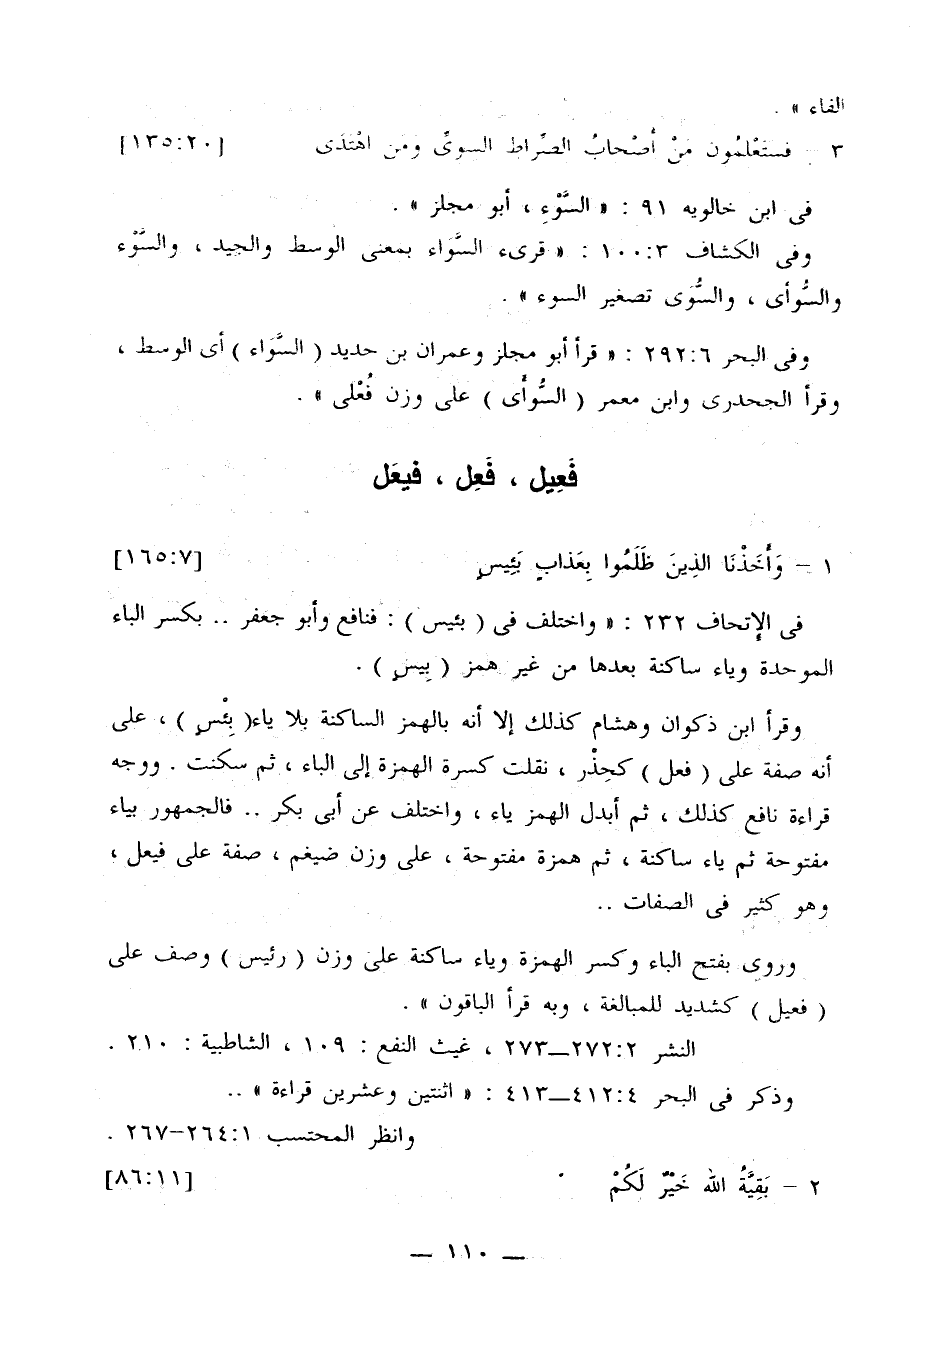 الفاء » .
٣ - فستَعْلمُون مَنْ أصْحابُ الصِّراط السوىِّ ومَن اهْتدَى [١٣٥:٢٠]
فى ابن خالويه ٩١ : « السَّوْءِ ، أبو مجلز » .
وفى الكشاف ١٠٠:٣ : « قرىء السَّوَاء بمعنى الوسط والجيد ، والسَّوْء
والسُّوأى ، والسُّوَى تصغير السوء » .
وفى البحر ٢٩٢:٦ : « قرأ أبو مجلز وعمران بن حديد ( السَّوَاء ) أى الوسط ،
وقرأ الجحدرى وابن معمر ( السُّوأَى ) على وزن فُعْلى » .
فَعِيل ، فَعِل ، فيعَل
١ - وَأَخَذْنَا الذِينَ ظَلَمُوا بِعَذابٍ بَئِيسٍ [١٦٥:٧]
فى الإتحاف ٢٣٢ : « واختلف فى ( بئيس ) : فنافع وأبو جعفر .. بكسر الباء
الموحدة وياء ساكنة بعدها من غير همز ( بِيسٍ ) .
وقرأ ابن ذكوان وهشام كذلك إلا أنه بالهمز الساكنة بلا ياء( بِئْسٍ ) ، على
أنه صفة على ( فعل ) كحِذْر ، نقلت كسرة الهمزة إلى الباء ، ثم سكنت . ووجه
قراءة نافع كذلك ، ثم أبدل الهمز ياء ، واختلف عن أبى بكر .. فالجمهور بياء
مفتوحة ثم ياء ساكنة ، ثم همزة مفتوحة ، على وزن ضيغم ، صفة على فيعل ،
وهو كثير فى الصفات ..
وروى بفتح الباء وكسر الهمزة وياء ساكنة على وزن ( رئيس ) وصف على
( فعيل ) كشديد للمبالغة ، وبه قرأ الباقون » .
النشر ٢٧٢:٢—٢٧٣ ، غيث النفع : ١٠٩ ، الشاطبية : ٢١٠ .
وذكر فى البحر ٤١٢:٤—٤١٣ : « اثنتين وعشرين قراءة » ..
وانظر المحتسب ٢٦٤:١—٢٦٧ .
٢ - بَقِيَّةُ الله خَيْرٌ لَكُمْ [٨٦:١١]
— ١١٠ —